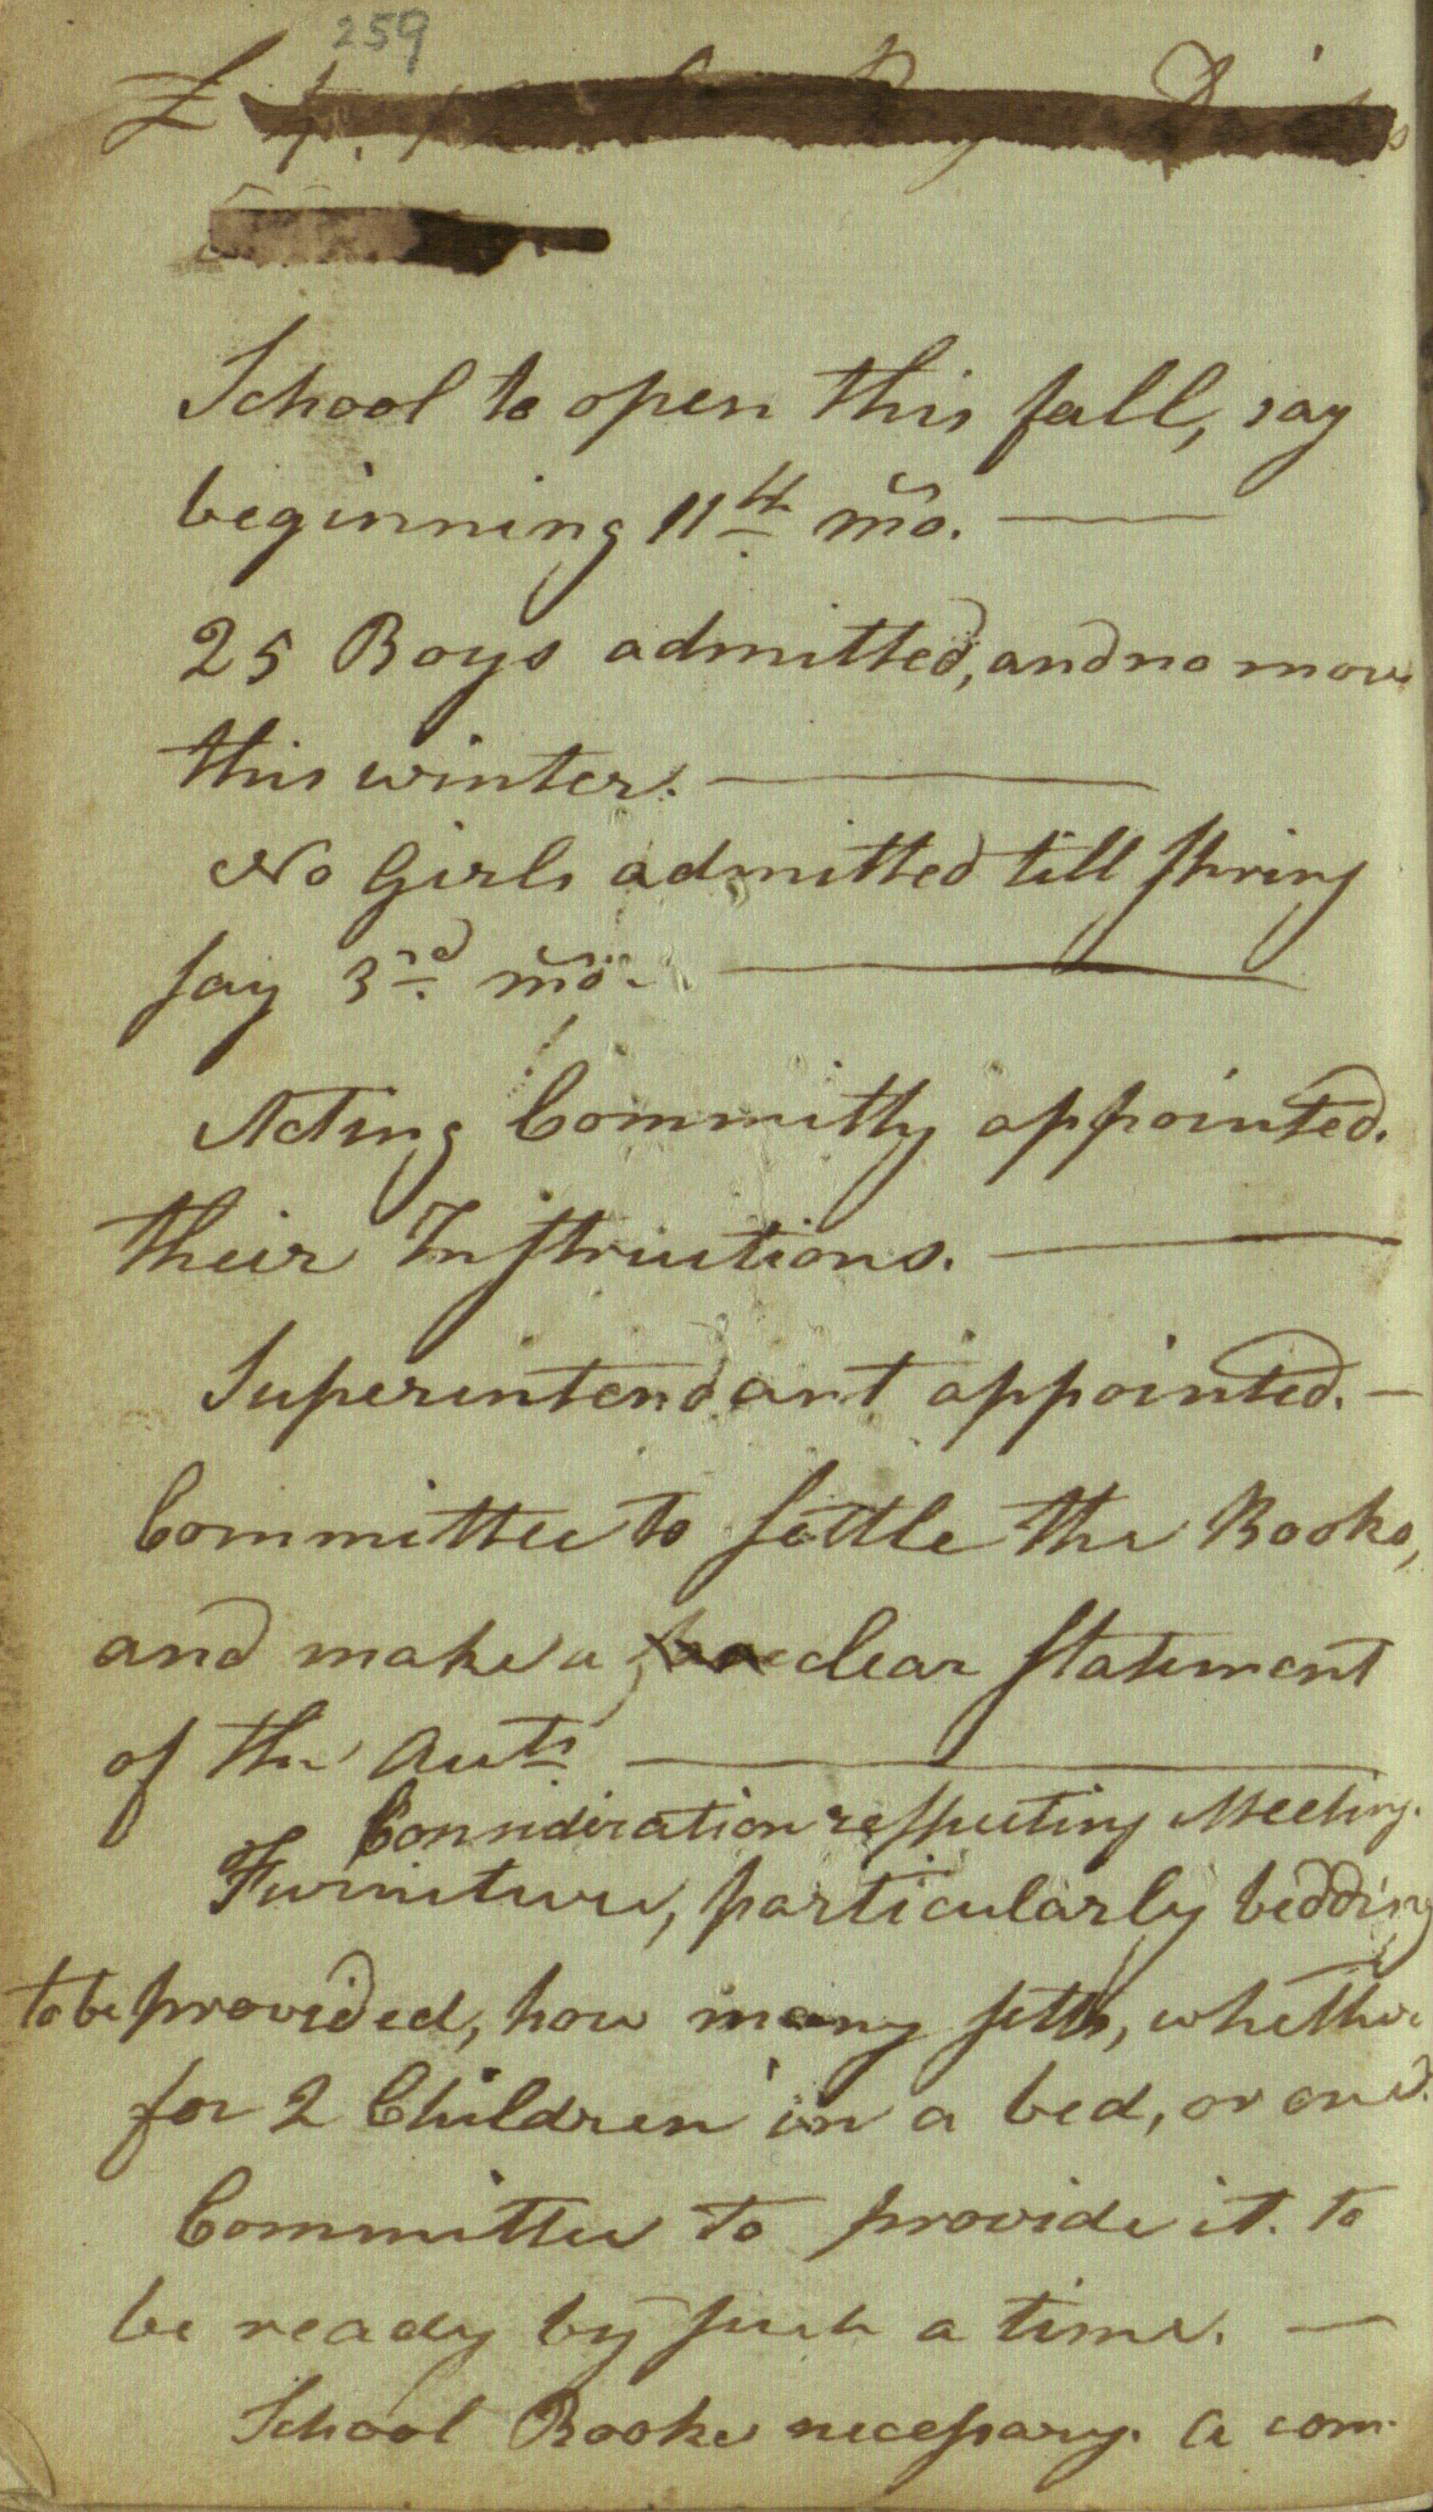 259
School to open this fall, say
beginning 11th mo.
25 Boys admitted, and no more
this winter.
No Girls admitted till Spring
say 3rd mo.
Acting Committy appointed.
their Instructions.
Superintendant appointed.
Committee to settle the Books,
and make a clear statement
of the Accts
Consideration respecting Meeting.
Furniture, particularly bedding
to be provided, how many setts, whether
for 2 Children in a bed, or one.
Committee to provide it. to
be ready by such a time.
School Books necessary. a com-